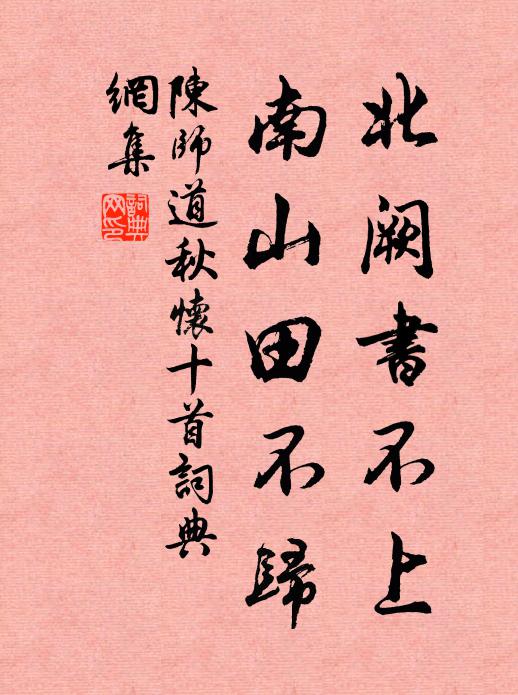 北阙書不上
南山田不歸
陳師道秋懷十首詞典
網集
詞典网印